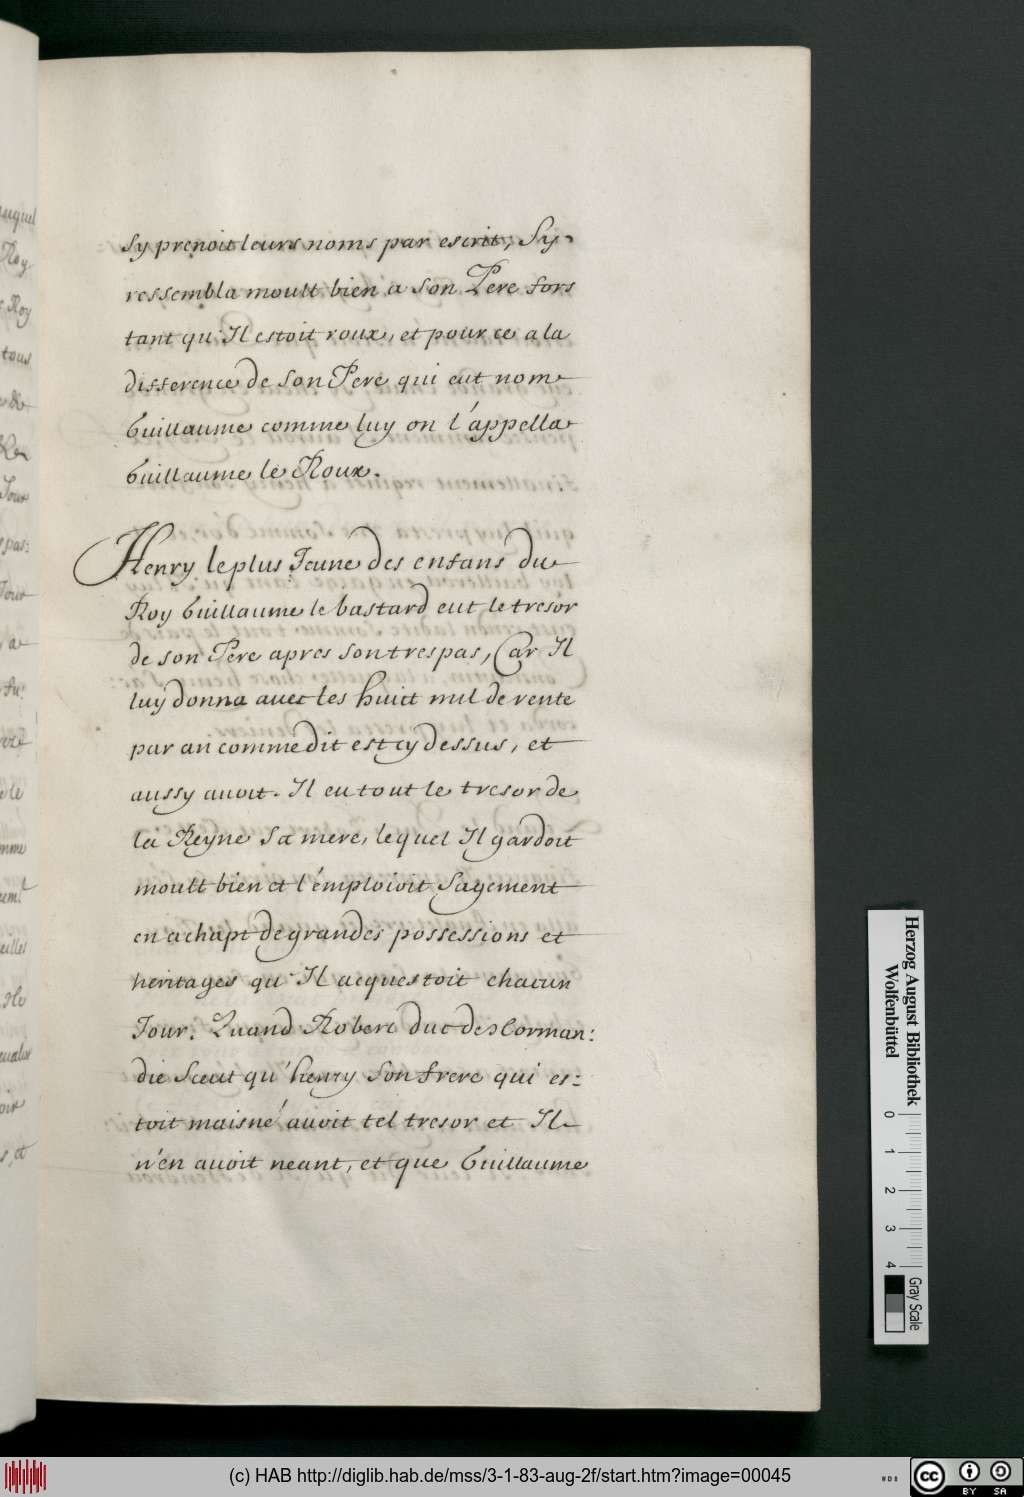 Sy prenoit leurs noms par escrit, Sy
ressembla moult bien a son Pere fors
tant qu'Il estoit roux, et pour ce a la
difference de son Pere qui eut nom
Guillaume comme luy on l'appella
Guillaume le Roux.
Henry le plus Jeune des enfans du
Roy Guillaume le bastard eut le tresor
de son Pere apres son trespas, Car Il
luy donna avec les huict mil de rente
par an comme dit est cy dessus, et
aussy avoit. Il eu tout le tresor de
la Reyne sa mere, lequel Il gardoit
moult bien et l'emploioit sagement
en achapt de grandes possessions et
heritages qu'Il acquestoit chacun
Jour. Quand Robert duc de Norman:
die sceut qu'henry son frere qui es:
toit maisné avoit tel tresor et Il
n'en avoit neant, et que Guillaume
auquel
Roy
Roy
tous
de
Jour
pas:
Jour
a
le
s, et
Herzog August Bibliothek
Wolfenbüttel
0 1 2 3 4
Gray Scale
(c) HAB http://diglib.hab.de/mss/3-1-83-aug-2f/start.htm?image=00045
WDB
cc BY SA